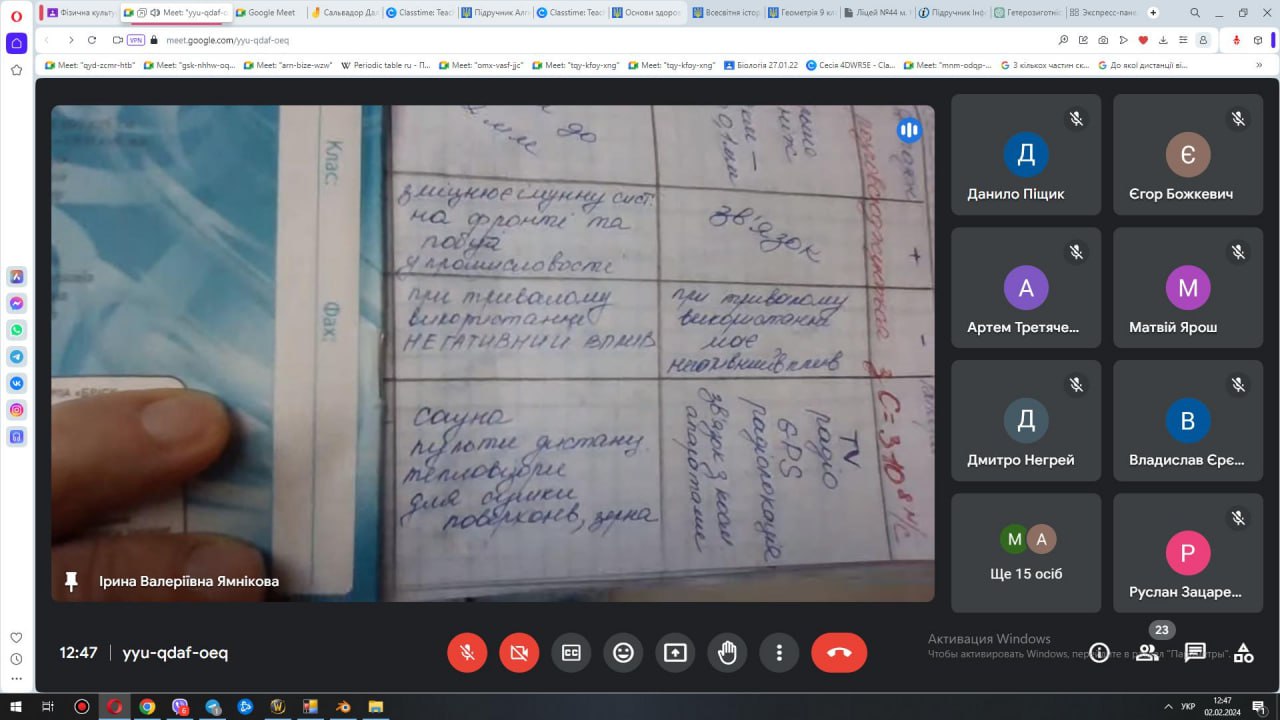 Фізична культу
Meet: "yyu-qdaf-o
Google Meet
Сальвадор Да
Classtime: Teac
Підручник Алг
Classtime: Teac
Основи здоров
Всесвітня
Геометрія 9 кл
Підручник Інф
Гетерозиготн
Экспресс-пане
VPN
meet.google.com/yyu-qdaf-oeq
Meet: "qyd-zcmr-htb"
Meet: "gsk-nhhw-oq...
Meet: "arn-bize-wzw"
Periodic table ru - П...
Meet: "omx-vasf-jjc"
Meet: "tqy-kfoy-xng"
Meet: "tqy-kfoy-xng"
Біологія 27.01.22
Сесія 4DWR5E - Cla...
Meet: "mnm-odqp-...
З кількох частин ск...
До якої дистанції ві...
Клас:
Фах:
до
мм
зміцнює імунну сист.
на фронті та
побуті
у промисловості
зв'язок
+
при тривалому
використанні
НЕГАТИВНИЙ ВПЛИВ
при тривалому
використанні
має
негативний вплив
-
сауна
пульти дистанц.
тепловізори
для сушки
поверхонь, зерна
TV
радіо
GPS
радіолокація
зв'язок з косм
апаратами
C = 3·10⁸ м/с
Ірина Валеріївна Ямнікова
Д
Данило Піщик
Є
Єгор Божкевич
А
Артем Третяче...
М
Матвій Ярош
Д
Дмитро Негрей
В
Владислав Єрє...
М
А
Ще 15 осіб
Р
Руслан Зацаре...
12:47
yyu-qdaf-oeq
23
Активация Windows
Чтобы активировать Windows, перейдите в раздел "Параметры".
УКР
12:47
02.02.2024